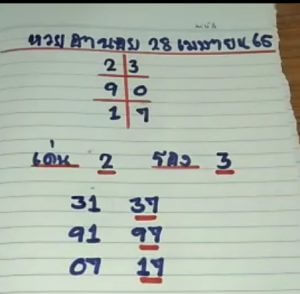 หวย ฮานอย 28 เมษายน 65
2 3
9 0
1 7
เด่น 2 รอง 3
31 37
91 97
07 17